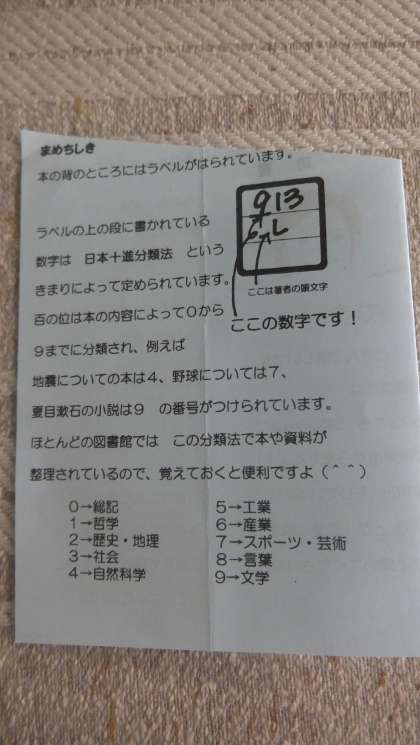 まめちしき
本の背のところにはラベルがはられています。
913
し
ラベルの上の段に書かれている
数字は 日本十進分類法 という
きまりによって定められています。
ここは著者の頭文字
百の位は本の内容によって0から
ここの数字です！
9までに分類され、例えば
地震についての本は4、野球については7、
夏目漱石の小説は9 の番号がつけられています。
ほとんどの図書館では この分類法で本や資料が
整理されているので、覚えておくと便利ですよ（＾＾）
0→総記
1→哲学
2→歴史・地理
3→社会
4→自然科学
5→工業
6→産業
7→スポーツ・芸術
8→言葉
9→文学